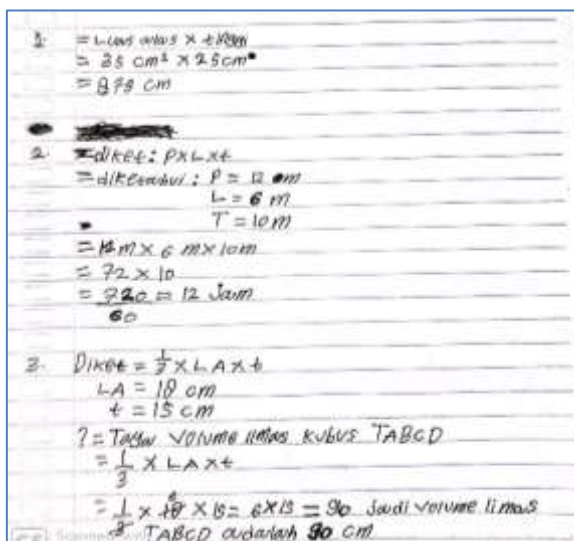 1. = Luas alas x tinggi
= 35 cm² x 25cm
= 875 cm
2. = diket: PxLxt
= diketahui: P = 12 m
L = 6 m
T = 10 m
= 12 m x 6 m x 10m
= 72 x 10
= 720 = 12 Jam
60
3. Diket = 1/3 x LA x t
LA = 18 cm
t = 15 cm
? = volume limas kubus TABCD
= 1/3 x LA x t
= 1/3 x 18 6 x 15 = 6 x 15 = 90 Jadi volume limas
TABCD adalah 90 cm